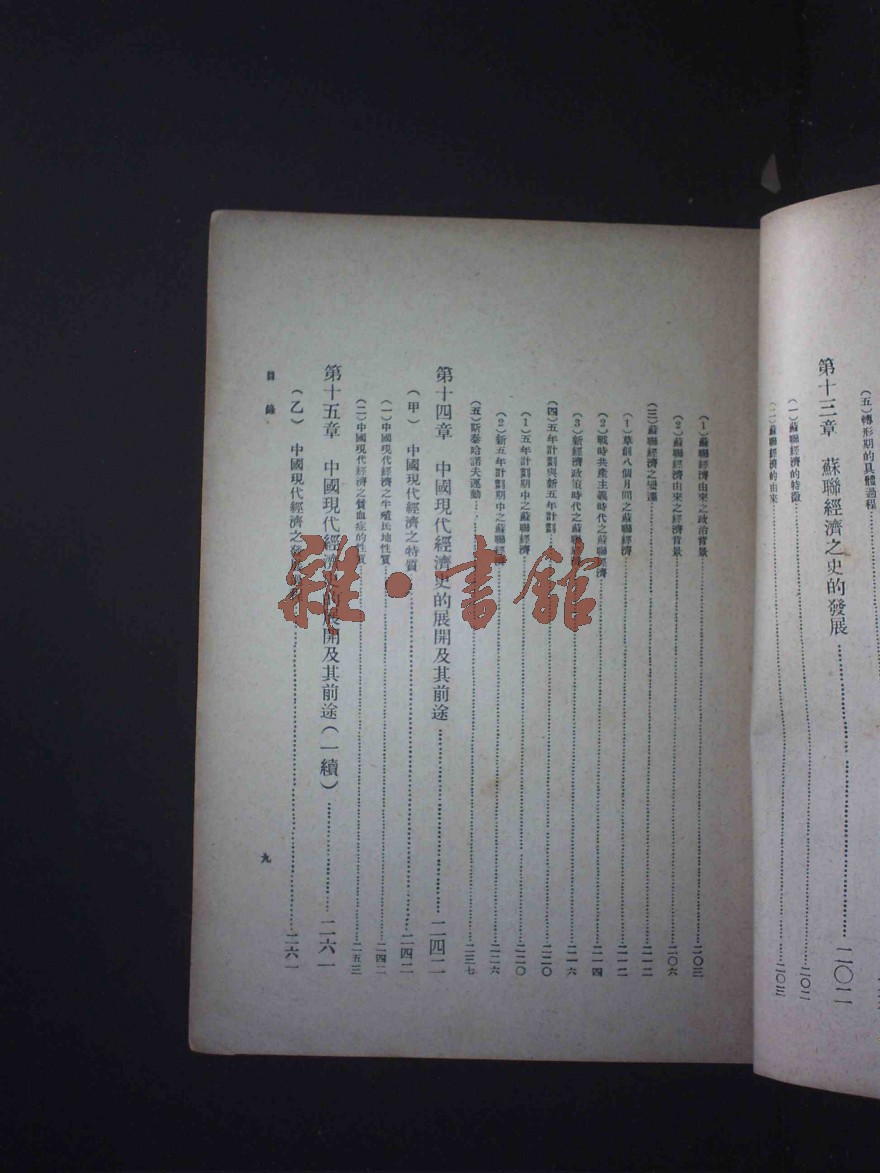 (五)轉形期的具體過程
第十三章 蘇聯經濟之史的發展……二〇二
(一)蘇聯經濟的特徵……二〇二
(二)蘇聯經濟的由來……二〇三
(1)蘇聯經濟由來之政治背景……二〇三
(2)蘇聯經濟由來之經濟背景……二〇六
(三)蘇聯經濟之變遷……二一二
(1)草創八個月間之蘇聯經濟……二一二
(2)戰時共產主義時代之蘇聯經濟……二一四
(3)新經濟政策時代之蘇聯經濟……二一六
(四)五年計劃與新五年計劃……二二〇
(1)五年計劃期中之蘇聯經濟……二二〇
(2)新五年計劃期中之蘇聯經濟……二二六
(五)斯泰哈諾夫運動……二三七
第十四章 中國現代經濟史的展開及其前途……二四二
(甲) 中國現代經濟之特質……二四二
(一)中國現代經濟之半殖民地性質……二四二
(二)中國現代經濟之貧血症的性質……二五三
第十五章 中國現代經濟史的展開及其前途(一續)……二六一
(乙) 中國現代經濟之……二六一
目錄
九
雜·書館